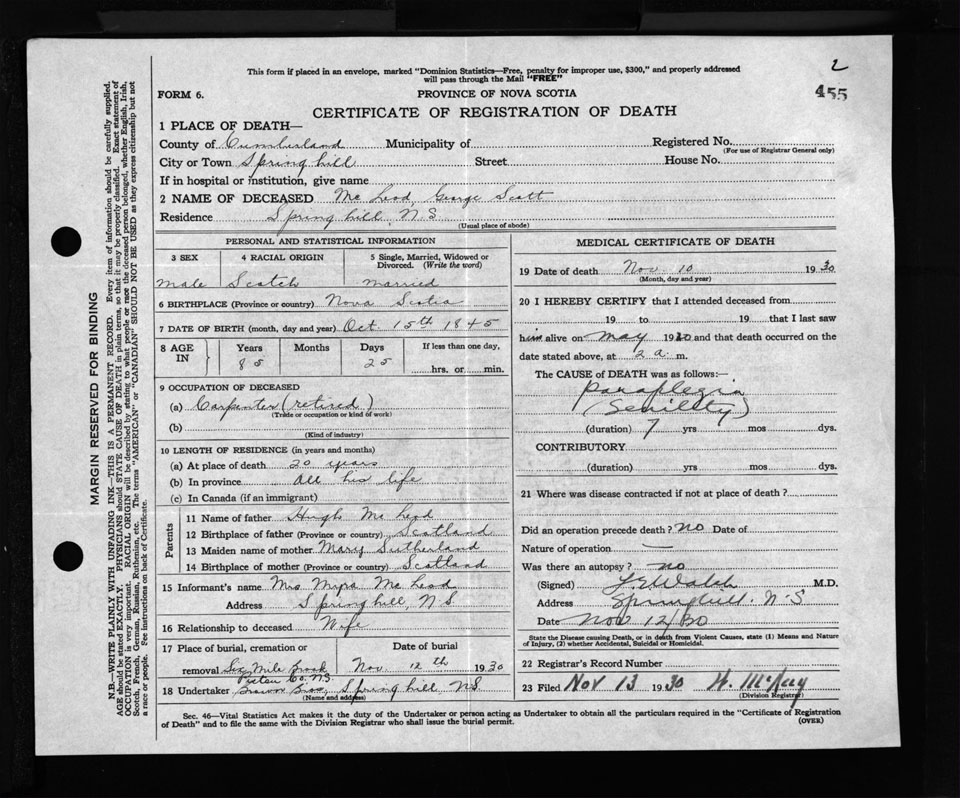 2
455
This form if placed in an envelope, marked "Dominion Statistics—Free, penalty for improper use, $300," and properly addressed
will pass through the Mail "FREE"
FORM 6.
PROVINCE OF NOVA SCOTIA
CERTIFICATE OF REGISTRATION OF DEATH
1 PLACE OF DEATH—
County of Cumberland Municipality of Registered No.
(For use of Registrar General only)
City or Town Spring hill Street House No.
If in hospital or institution, give name
2 NAME OF DECEASED Mc Leod, George Scott
Residence Spring hill, N.S
(Usual place of abode)
PERSONAL AND STATISTICAL INFORMATION
3 SEX 4 RACIAL ORIGIN 5 Single, Married, Widowed or
Divorced. (Write the word)
male Scotch married
6 BIRTHPLACE (Province or country) Nova Scotia
7 DATE OF BIRTH (month, day and year) Oct. 15th 1845
8 AGE IN Years Months Days If less than one day,
85 25 hrs. or min.
9 OCCUPATION OF DECEASED
(a) Carpenter (retired)
(Trade or occupation or kind of work)
(b)
(Kind of industry)
10 LENGTH OF RESIDENCE (in years and months)
(a) At place of death 20 years
(b) In province all his life
(c) In Canada (if an immigrant)
Parents
11 Name of father Hugh Mc Leod
12 Birthplace of father (Province or country) Scotland
13 Maiden name of mother Mary Sutherland
14 Birthplace of mother (Province or country) Scotland
15 Informant's name Mrs Myra Mc Leod
Address Spring hill, N.S.
16 Relationship to deceased Wife
17 Place of burial, cremation or Date of burial
removal Six Mile Brook Nov. 12th 1930
Pictou Co. N.S.
18 Undertaker Brown Bros, Spring hill, N.S.
(Name and address)
MEDICAL CERTIFICATE OF DEATH
19 Date of death Nov. 10 1930
(Month, day and year)
20 I HEREBY CERTIFY that I attended deceased from
19 to 19 that I last saw
him alive on May 1930 and that death occurred on the
date stated above, at 2 a. m.
The CAUSE of DEATH was as follows:—
Paraplegia
(Senility)
(duration) 7 yrs mos dys.
CONTRIBUTORY
(duration) yrs mos dys.
21 Where was disease contracted if not at place of death?
Did an operation precede death? no Date of
Nature of operation —
Was there an autopsy? no
(Signed) M.D.
Address Springhill. N.S
Date Nov 12/30
State the Disease causing Death, or in death from Violent Causes, state (1) Means and Nature
of Injury, (2) whether Accidental, Suicidal or Homicidal.
22 Registrar's Record Number
23 Filed Nov 13 1930 H. McKay
(Division Registrar)
Sec. 46—Vital Statistics Act makes it the duty of the Undertaker or person acting as Undertaker to obtain all the particulars required in the "Certificate of Registration
of Death" and to file the same with the Division Registrar who shall issue the burial permit.
(OVER)
MARGIN RESERVED FOR BINDING
N.B.—WRITE PLAINLY WITH UNFADING INK—THIS IS A PERMANENT RECORD. Every item of information should be carefully supplied.
AGE should be stated EXACTLY. PHYSICIANS should STATE CAUSE OF DEATH in plain terms, so that it may be properly classified. Exact statement of
OCCUPATION is very important. RACIAL ORIGIN will be described by stating to what people or race the deceased person belonged, whether English, Irish,
Scotch, French, German, Russian, Ruthenian, etc. The terms "AMERICAN" or "CANADIAN" SHOULD NOT BE USED as they express citizenship but not
a race or people. See instructions on back of Certificate.